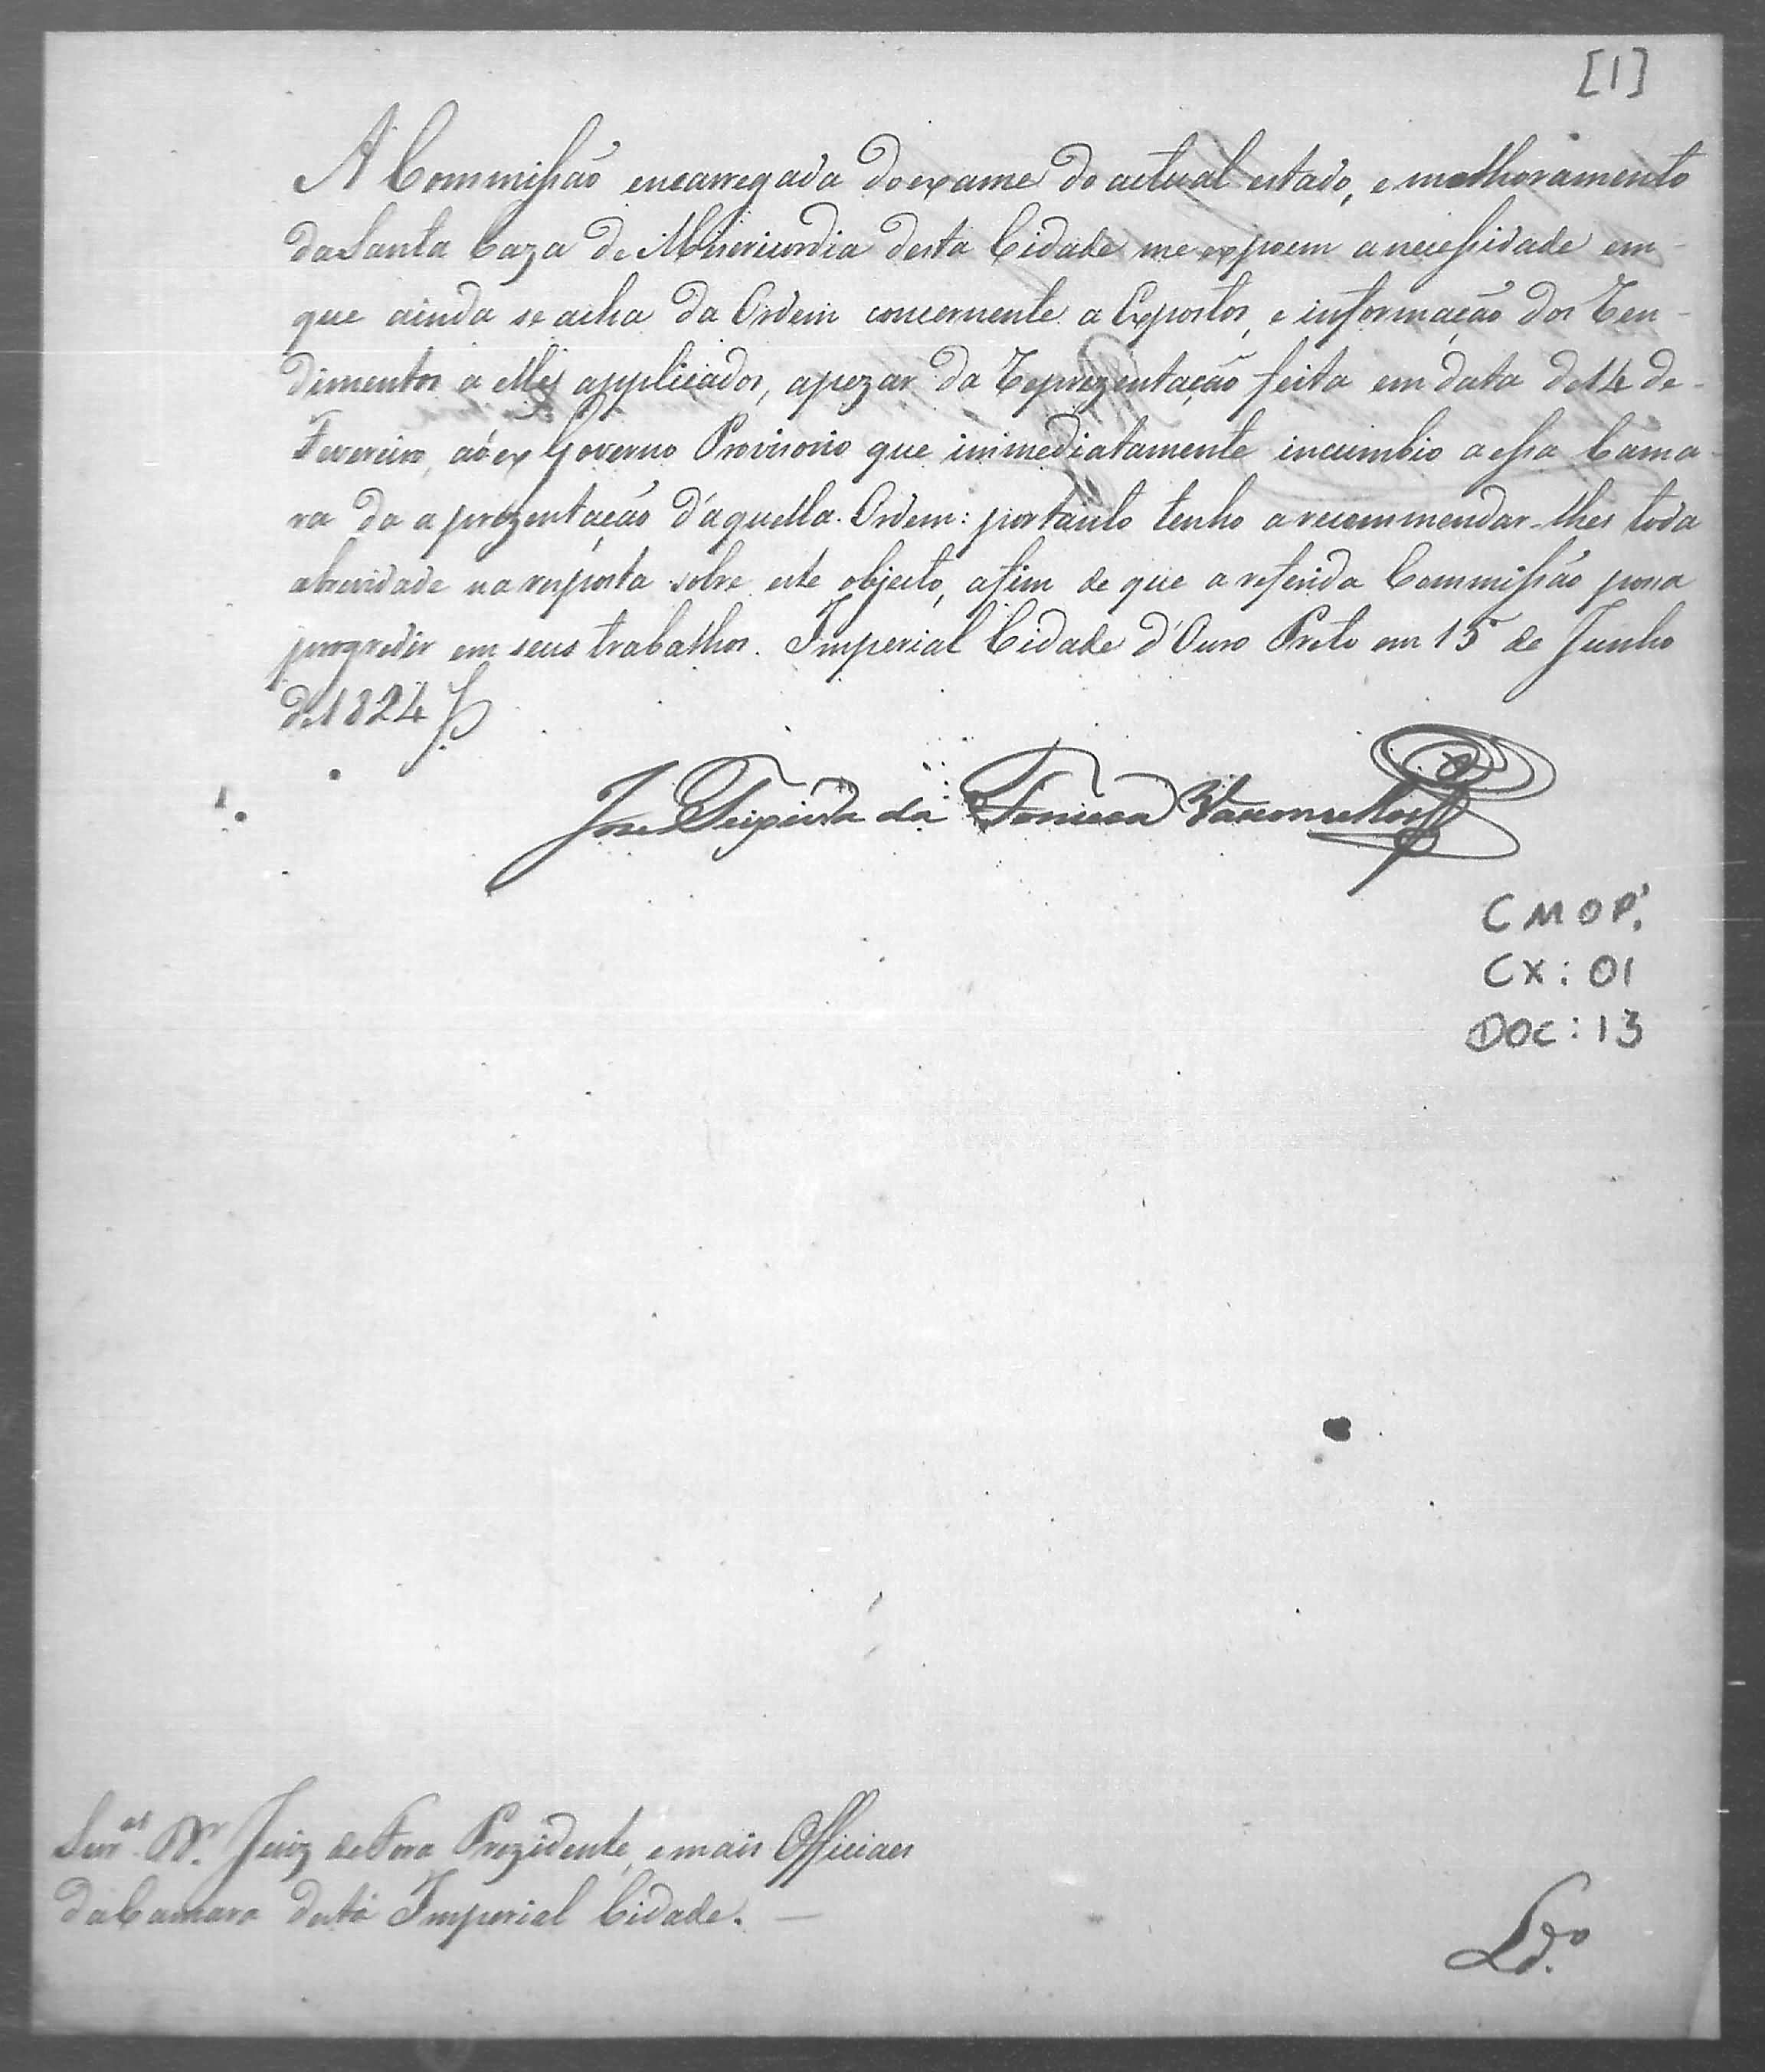 [1]
A Commissão encarregada do exame do actual estado, e melhoramento
da Santa Caza de Misericordia desta Cidade me expoem a necessidade em
que ainda se acha da Ordem concernente a Expostos, e informação dos Ren-
dimentos a elles applicados, apezar da Reprezentação feita em data de 14 de
Fevereiro, aó ex Governo Provisorio que immediatamente incumbio a essa Cama-
ra da aprezentação d'aquella Ordem: portanto tenho a recommendar-lhes toda
a brevidade na resposta sobre este objecto, afim de que a referida Commissão possa
progredir em seus trabalhos. Imperial Cidade d'Ouro Preto em 15 de Junho
de 1824
Jose Teixeira da Fonseca Vasconcellos
CMOP.
CX: 01
DOC: 13
Snr.es Dr. Juiz de Fora Prezidente, e mais Officiaes
da Camara desta Imperial Cidade. —